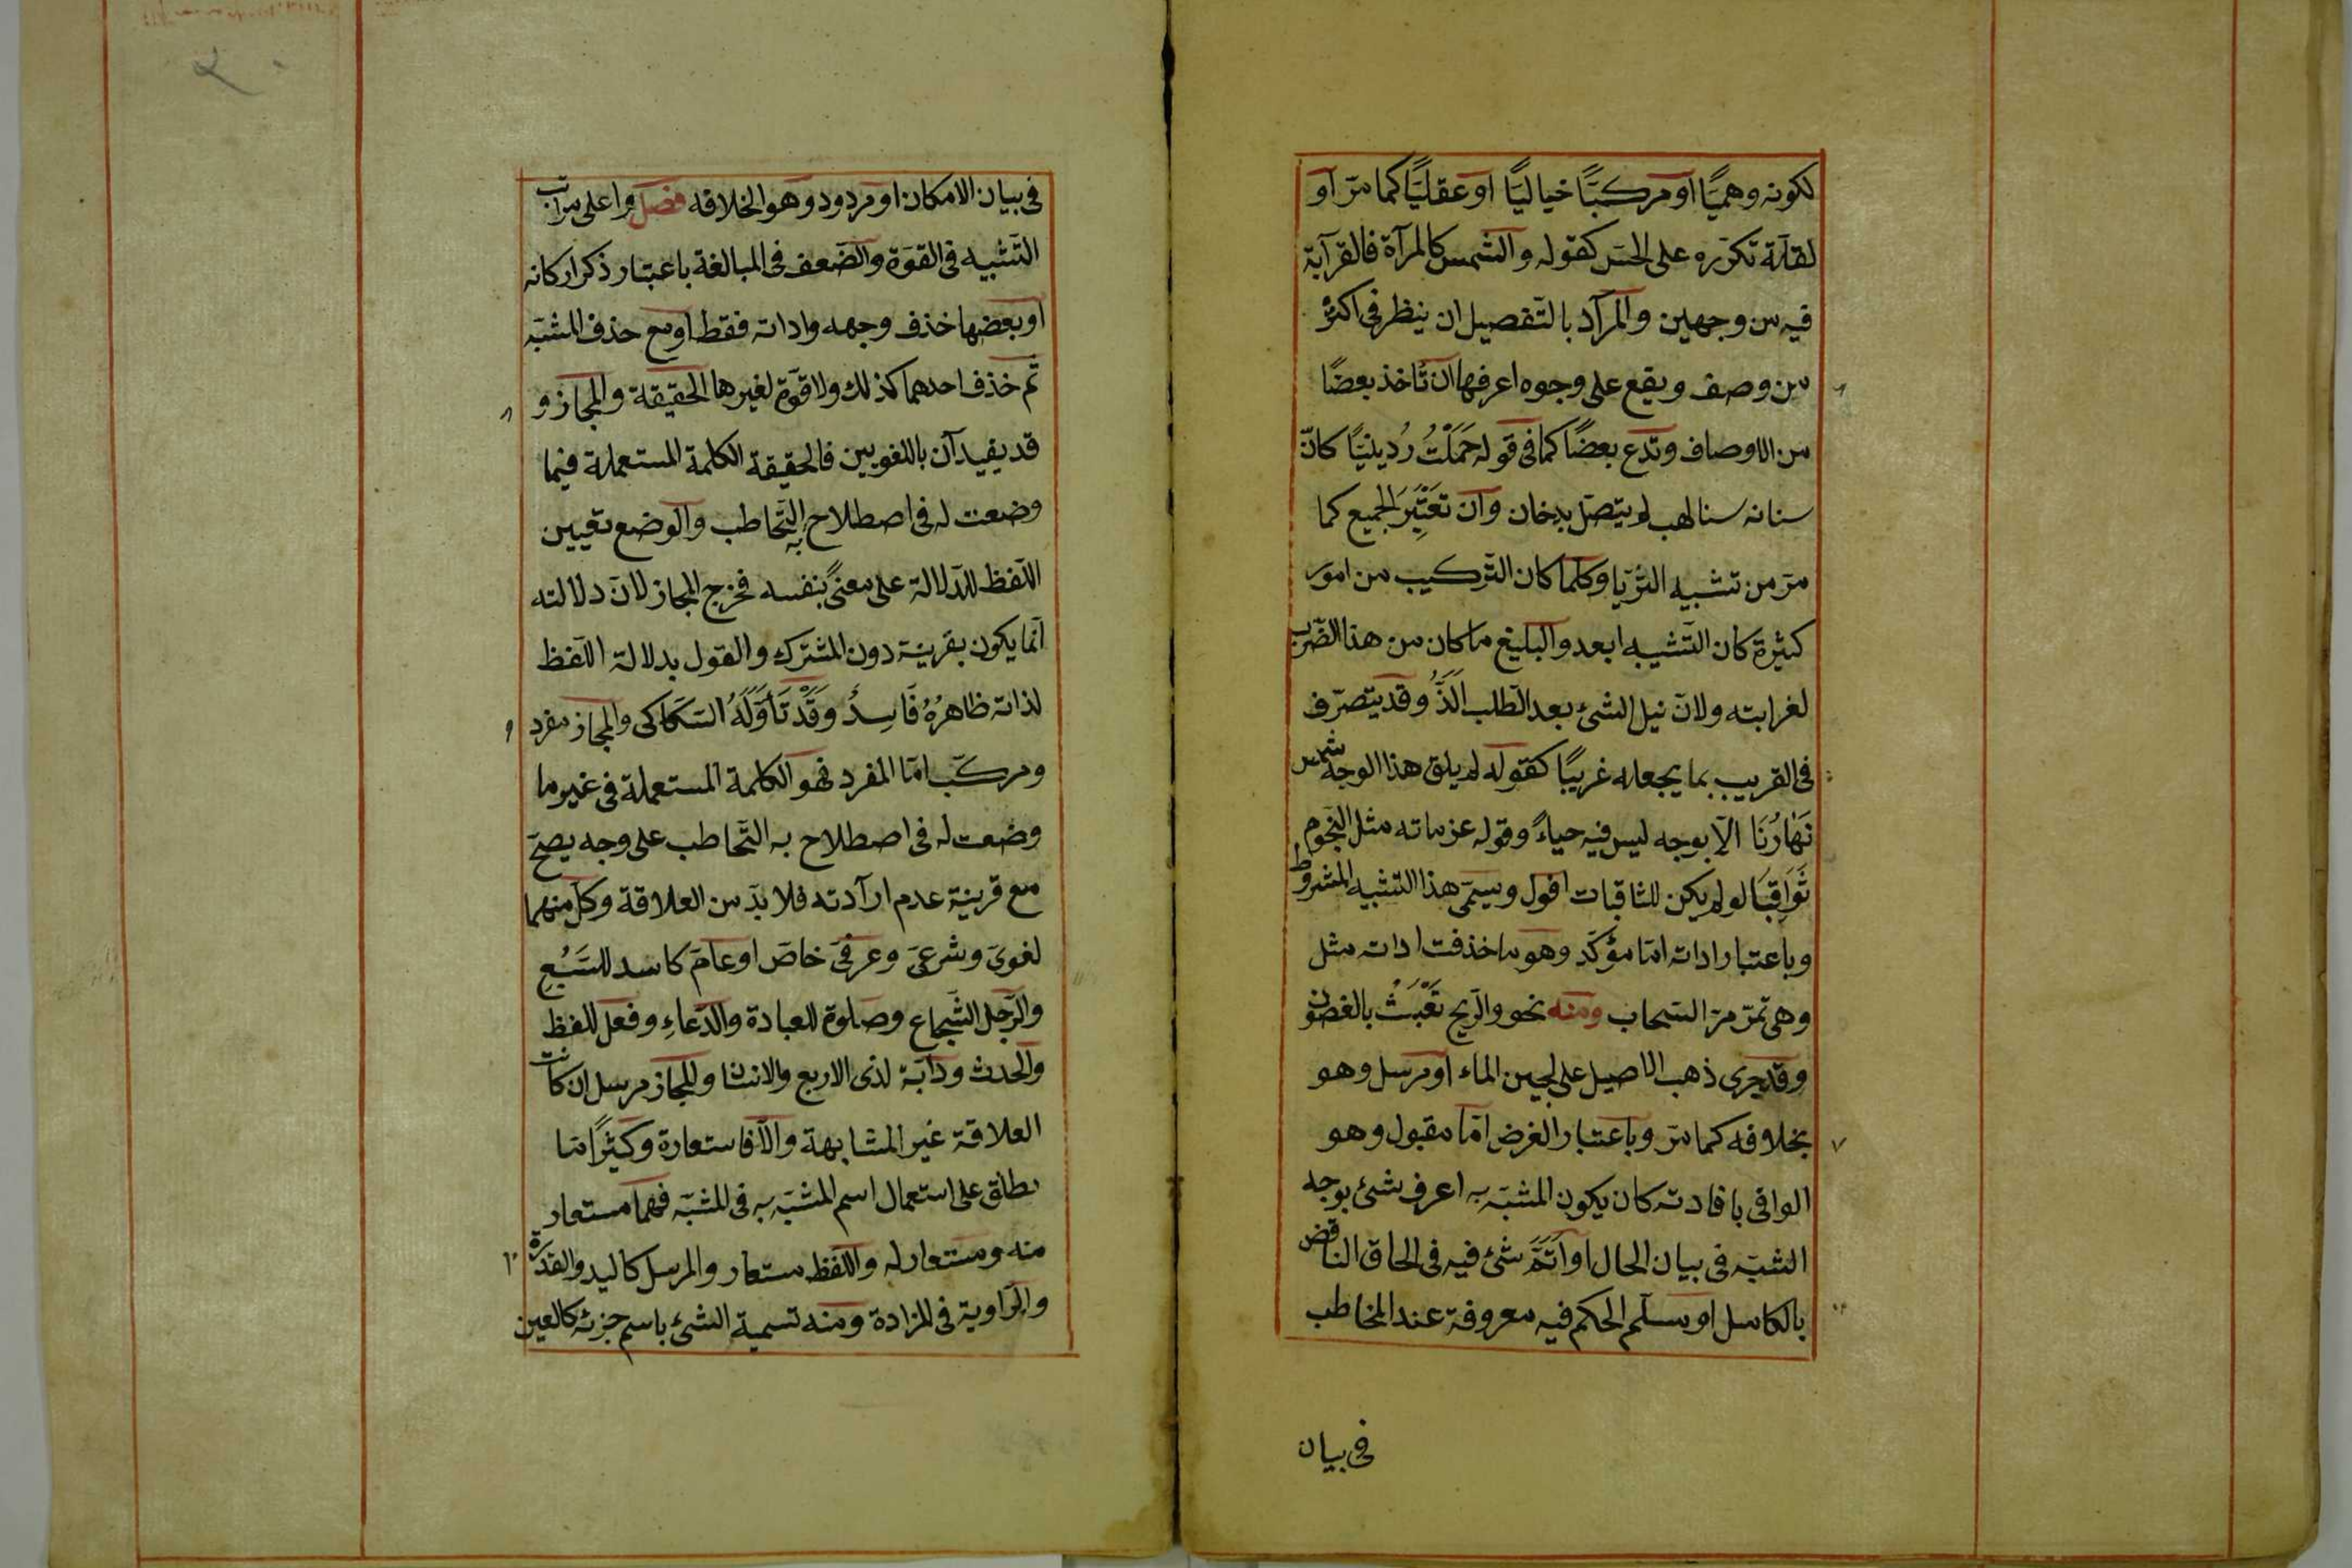 لكونه وهميّا او مركبّا خياليّا او عقليّا كما مرّ او
لقلّة تكرّره على الحسّ كقوله والشمس كالمرآة فالقرآبة
فيه من وجهين والمرآد بالتّفصيل ان ينظر فى اكثر
من وصف ويقع على وجوه اعرفها ان تاخذ بعضًا
من الاوصاف وتدع بعضًا كما فى قوله حَمَلْتُ رُدينيًا كانّ
سنانه سنا لهب لم يتّصل بدخان وان تَعْتَبِرَ الجميع كما
مرّ من تشبيه الثّريّا وكلما كان التّركيب من امور
كثيرة كان التّشبيه ابعد والبليغ ما كان من هذا الضّرب
لغرابته ولانّ نيل الشئ بعد الطّلب اَلَذُّ وقد يتصرّف
فى القريب بما يجعله غريبًا كقوله لم يلق هذا الوجه شمس
نَهَارُنَا الّا بوجه ليس فيه حياءً وقوله عزماته مثل النّجوم
ثَوَاقِبًا لو لم يكن للثاقبات افول ويسمّى هذا التشبيه المشروط
وباعتبار اداته امّا مؤكّد وهو ما خذفت اداته مثل
وهى تمرّ مرّ السّحاب ومنه نحو والرّيح تَعْبَثُ بالغصون
وقد جرى ذهب الاصيل على لجين الماء او مرسل وهو
بخلافه كما مرّ وباعتبار الغرض امّا مقبول وهو
الوافى بافادته كان يكون المشبّه به اعرف شئ بوجه
الشبّه فى بيان الحال او اَتَمَّ شئ فيه فى الحاق الناقض
بالكامل او مسلّم الحكم فيه معروفة عند المخاطب
فى بيان
فى بيان الامكان او مردود وهو الخلافه فصل واعلى مراتب
التّشبيه فى القوّة والضّعف فى المبالغة باعتبار ذكر اركانه
او بعضها خذف وجهه واداته فقط او مع حذف المشبّه
ثم خذف احدهما كذلك ولا قوّة لغيرها الحقيقة والمجاز و
قد يقيدآن باللغويين فالحقيقة الكلمة المستعملة فيما
وضعت له فى اصطلاح به التّخاطب والوضع تعيين
اللّفظ للدّلالة على معنىً بنفسه فخرج المجاز لانّ دلالته
انّما يكون بقرينة دون المشترك والقول بدلالة اللّفظ
لذاته ظاهرُهُ فَاسِدٌ وَقَدْ تَأَوَّلَهُ السّكّاكى والمجاز مفرد
ومركّب امّا المفرد فهو الكلمة المستعملة فى غير ما
وضعت له فى اصطلاح به التّخاطب على وجه يصحّ
مع قرينة عدم ارآدته فلا بدّ من العلاقة وكلّ منهما
لغوىّ وشرعىّ وعرفىّ خاصّ او عامّ كاسد للسَّبُعِ
والرّجل الشّجاع وصلوة للعبادة والدّعاءِ وفعل للفظ
والحدث ودآبّة لذى الاربع والانسان والمجاز مرسل ان كانت
العلاقة غير المشابهة والّا فاستعارة وكثيرًا مّا
يطلق على استعمال اسم المشبّه به فى المشبّه فهما مستعار
منه ومستعار له واللّفظ مستعار والمرسل كاليد والقدرة
والرّاوية فى المزادة ومنه تسمية الشئ باسم جزئه كالعين